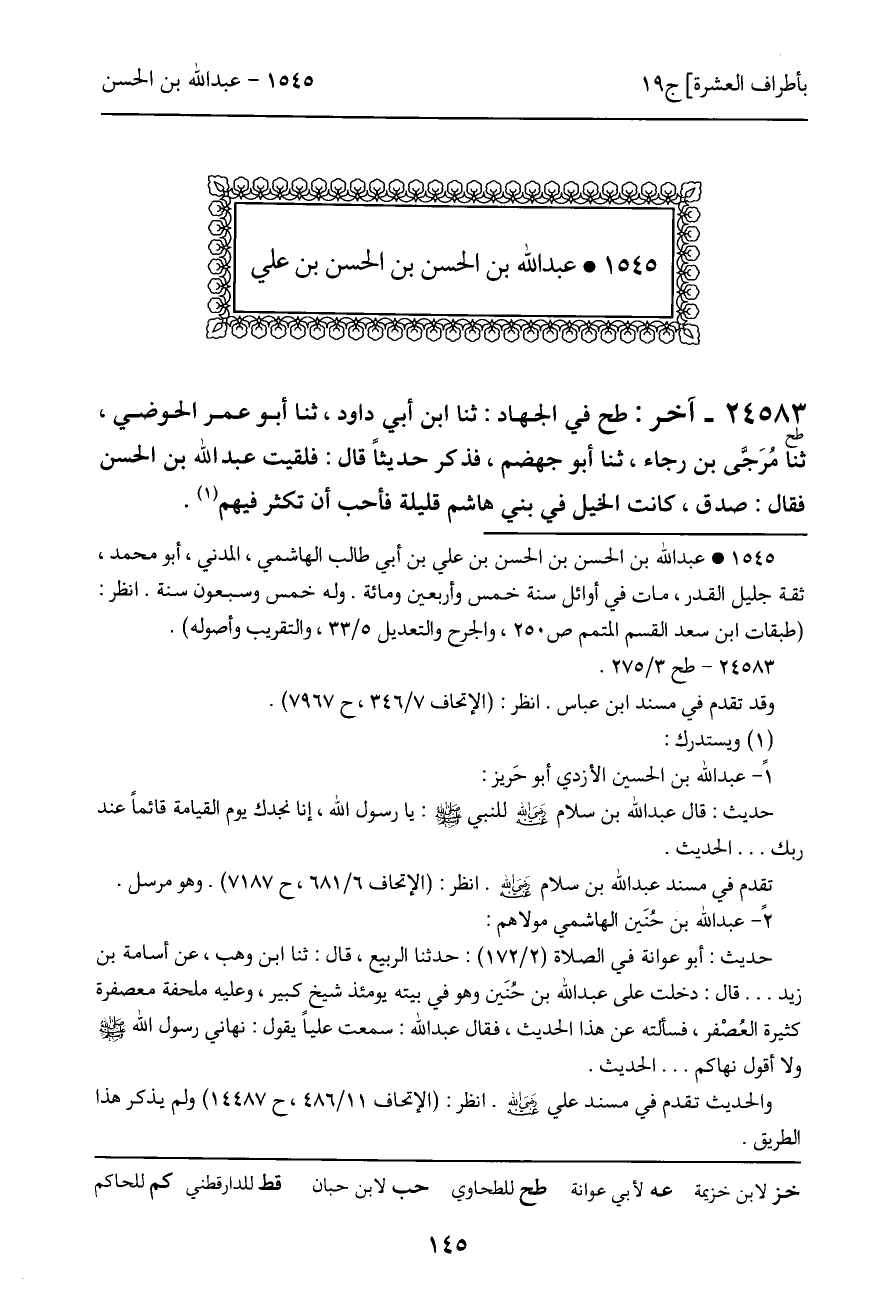 بأطراف العشرة] ج١٩
١٥٤٥ - عبدالله بن الحسن
١٥٤٥ ● عبدالله بن الحسن بن الحسن بن علي
٢٤٥٨٣ ـ آخر : طح في الجهاد : ثنا ابن أبي داود ، ثنا أبو عمر الحوضي ،
طح
ثنا مُرَجَّى بن رجاء ، ثنا أبو جهضم ، فذكر حديثاً قال : فلقيت عبدالله بن الحسن
فقال : صدق ، كانت الخيل في بني هاشم قليلة فأحب أن تكثر فيهم(١) .
١٥٤٥ ● عبدالله بن الحسن بن الحسن بن علي بن أبي طالب الهاشمي ، المدني ، أبو محمد ،
ثقة جليل القدر ، مات في أوائل سنة خمس وأربعين ومائة . وله خمس وسبعون سنة . انظر :
(طبقات ابن سعد القسم المتمم ص٢٥٠ ، والجرح والتعديل ٣٣/٥ ، والتقريب وأصوله) .
٢٤٥٨٣ - طح ٢٧٥/٣ .
وقد تقدم في مسند ابن عباس . انظر : (الإتحاف ٣٤٦/٧ ، ح ٧٩٦٧) .
(١) ويستدرك :
١ً- عبدالله بن الحسين الأزدي أبو حَريز :
حديث : قال عبدالله بن سلام ﵁ للنبي ﷺ : يا رسول الله ، إنا نجدك يوم القيامة قائماً عند
ربك . . . الحديث .
تقدم في مسند عبدالله بن سلام ﵁ . انظر : (الإتحاف ٦٨١/٦ ، ح ٧١٨٧) . وهو مرسل .
٢ً- عبدالله بن حُنَين الهاشمي مولاهم :
حديث : أبو عوانة في الصلاة (١٧٢/٢) : حدثنا الربيع ، قال : ثنا ابن وهب ، عن أسامة بن
زيد . . . قال : دخلت على عبدالله بن حُنَين وهو في بيته يومئذ شيخ كبير ، وعليه ملحفة معصفرة
كثيرة العُصْفر ، فسألته عن هذا الحديث ، فقال عبدالله : سمعت علياً يقول : نهاني رسول الله ﷺ
ولا أقول نهاكم . . . الحديث .
والحديث تقدم في مسند علي ﵁ . انظر : (الإتحاف ٤٨٦/١١ ، ح ١٤٤٨٧) ولم يذكر هذا
الطريق .
خز لابن خزيمة عه لأبي عوانة طح للطحاوي حب لابن حبان قط للدارقطني كم للحاكم
١٤٥